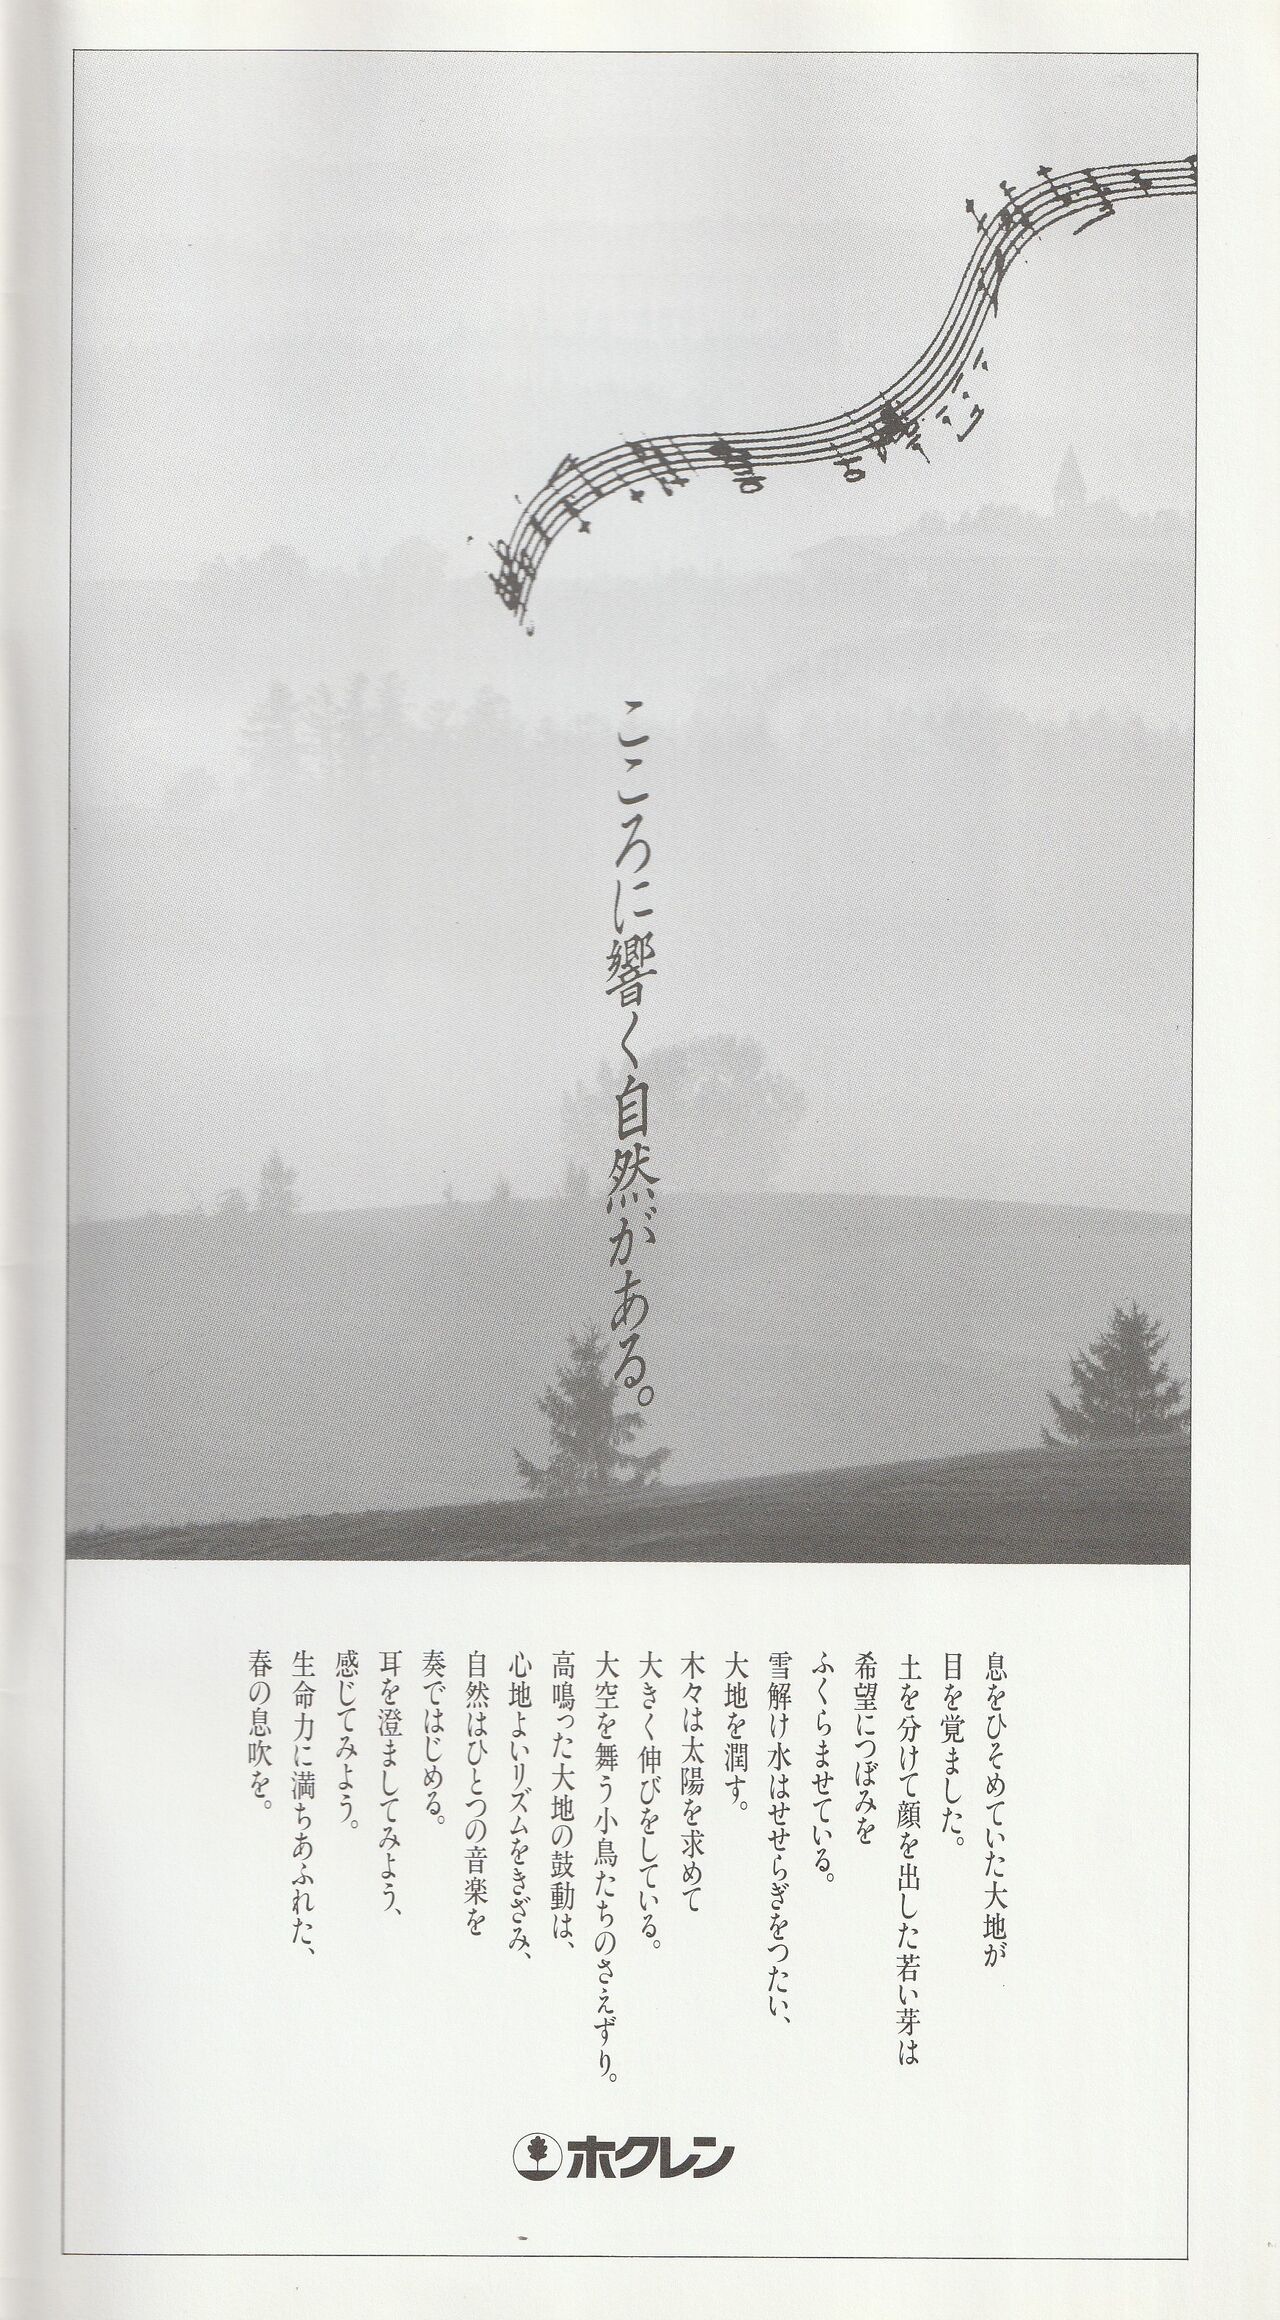 こころに響く自然がある。
息をひそめていた大地が
目を覚ました。
土を分けて顔を出した若い芽は
希望につぼみを
ふくらませている。
雪解け水はせせらぎをつたい、
大地を潤す。
木々は太陽を求めて
大きく伸びをしている。
大空を舞う小鳥たちのさえずり。
高鳴った大地の鼓動は、
心地よいリズムをきざみ、
自然はひとつの音楽を
奏ではじめる。
耳を澄ましてみよう、
感じてみよう。
生命力に満ちあふれた、
春の息吹を。
ホクレン